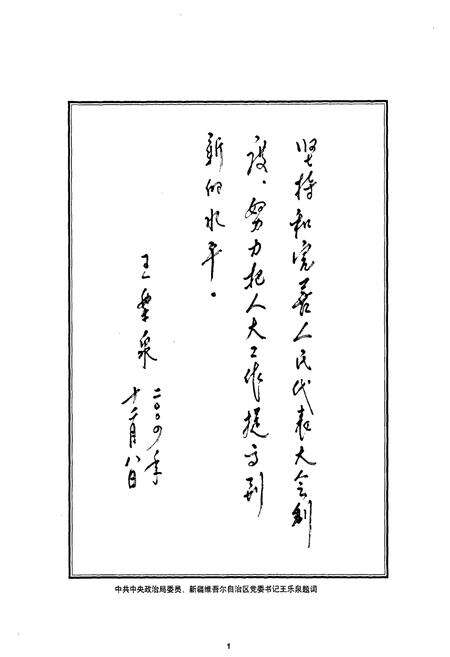 坚持和完善人民代表大会制
度，努力把人大工作提高到
新的水平。
王乐泉
二〇〇四年
十二月八日
中共中央政治局委员、新疆维吾尔自治区党委书记王乐泉题词
1